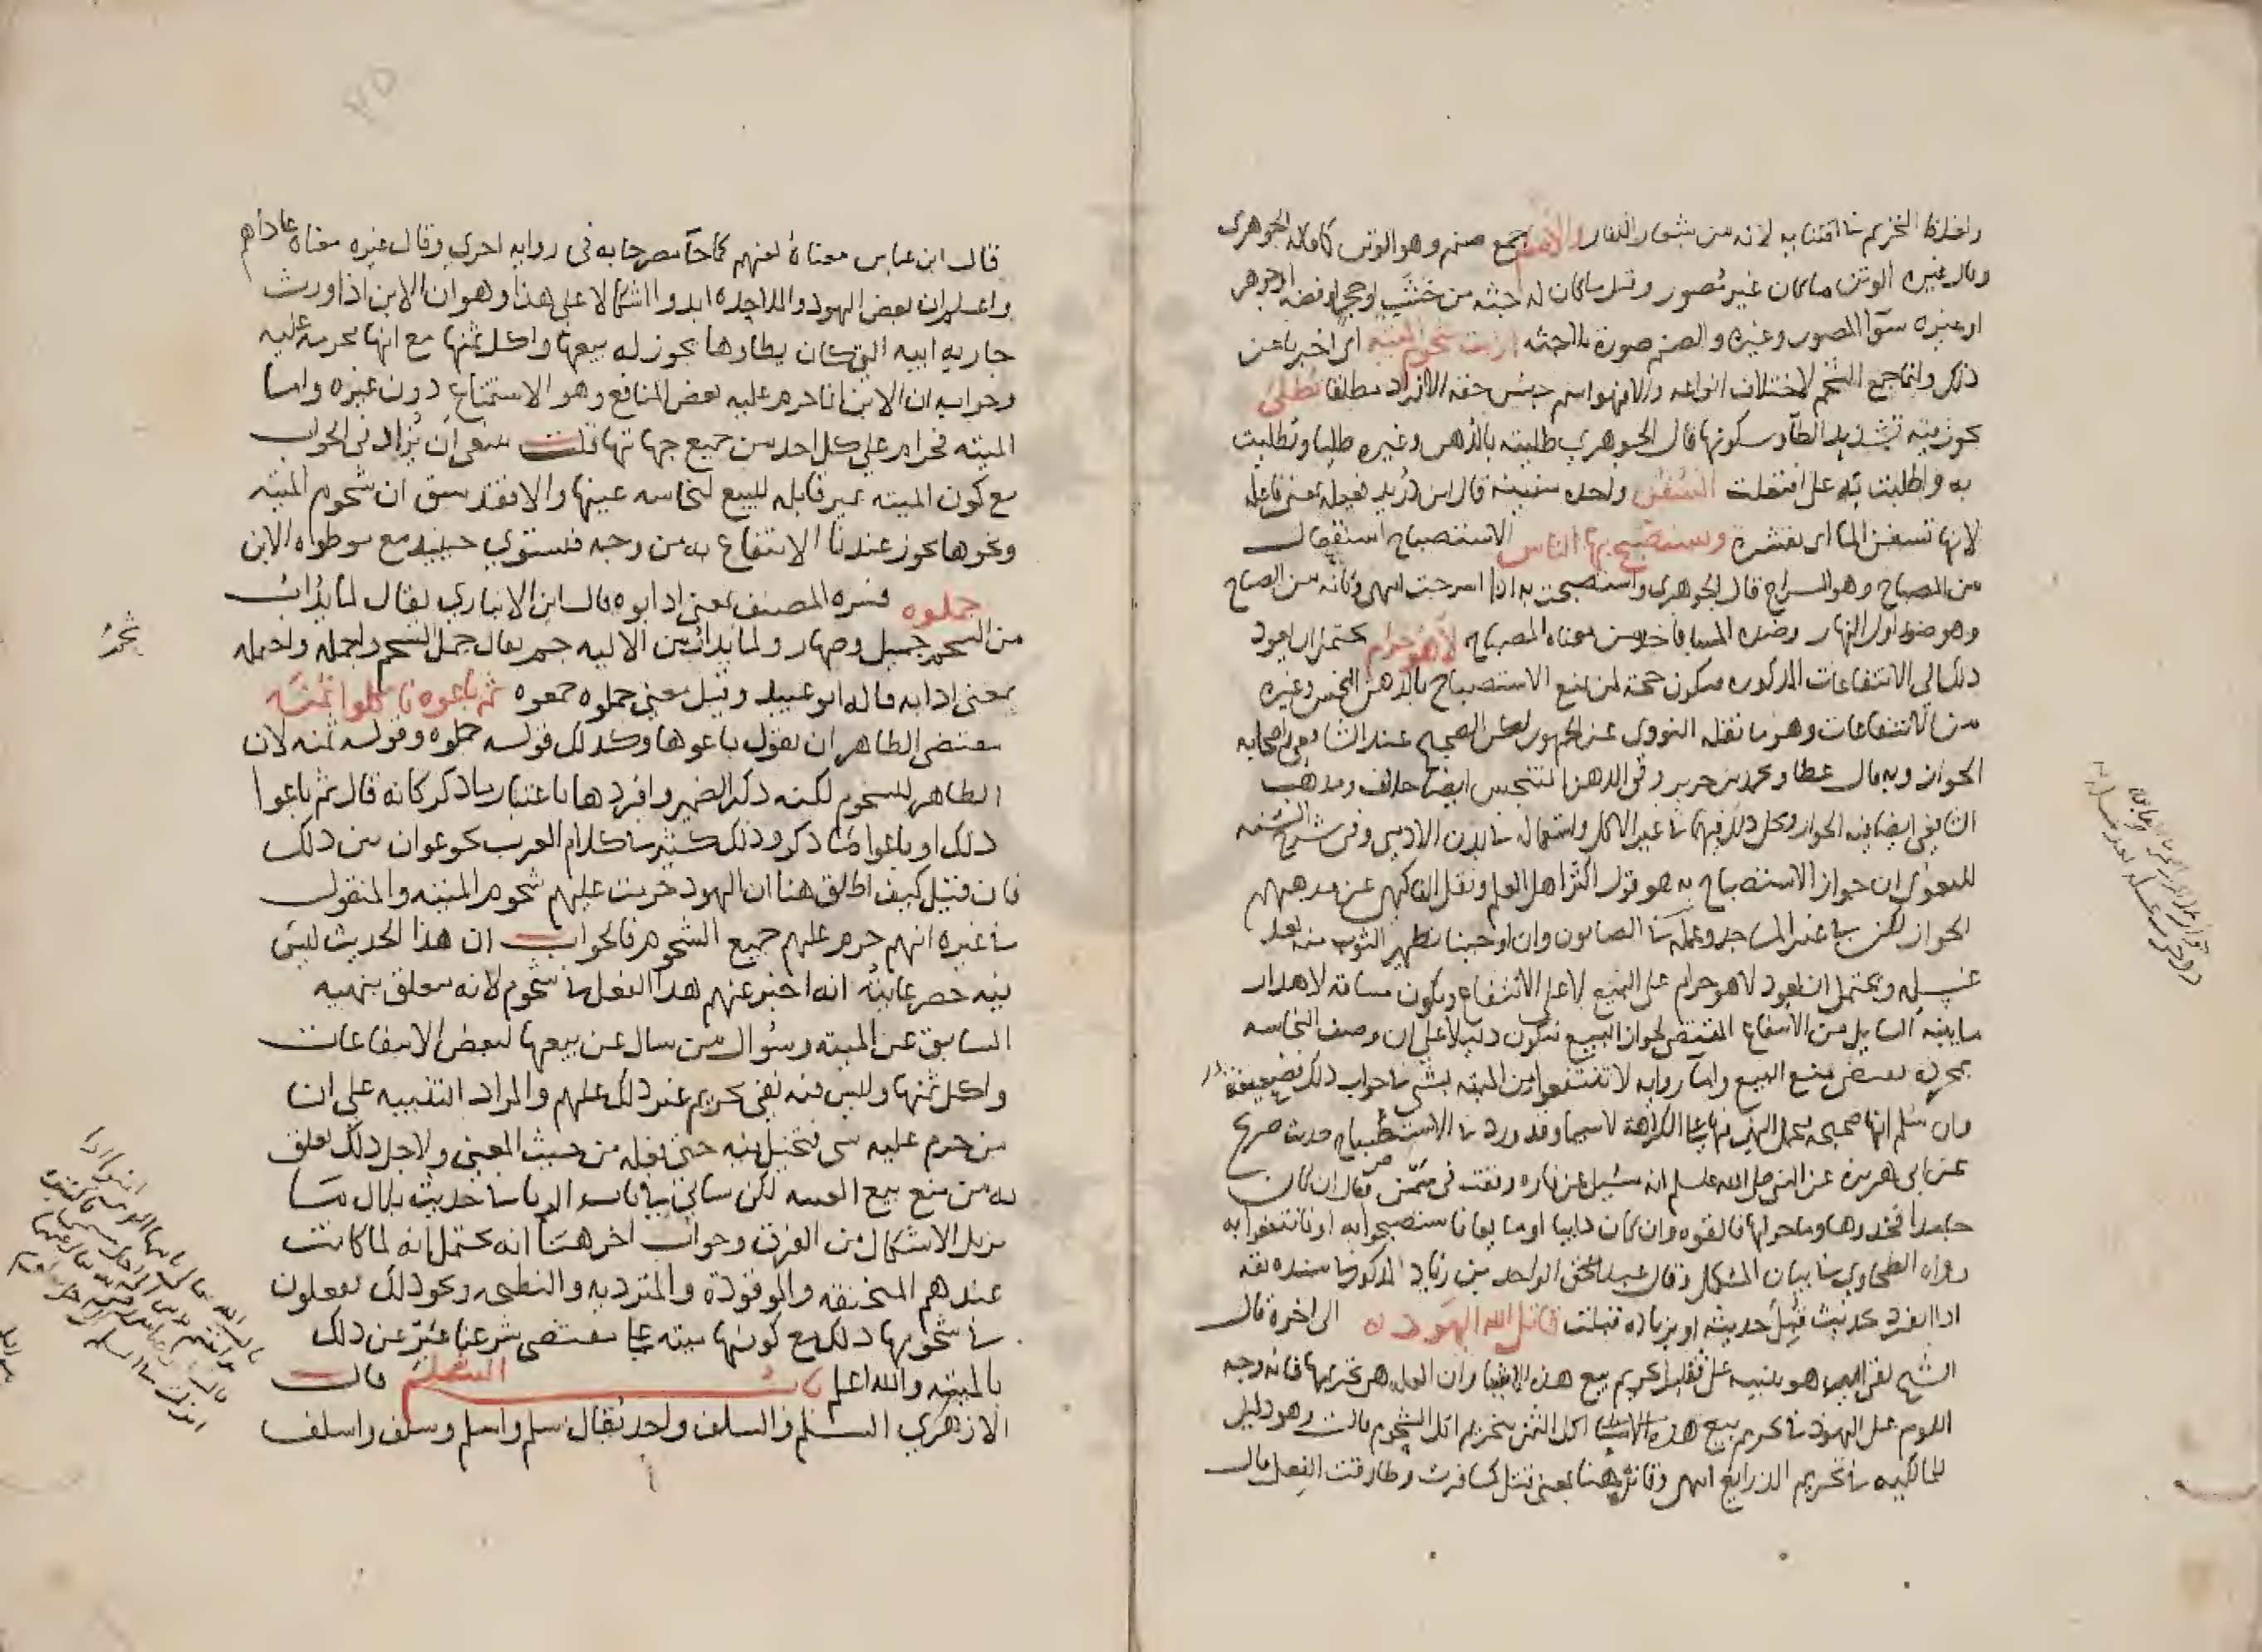 واخذ ذا الخنزير ما اقتنابه لانه من شعار الكفار والاصنام جمع صنم وهو الوثن كما قاله الجوهري
وقال غيره الوثن ما كان غير مصور وقيل ما كان له جثه من خشب او حجر او فضه او جوهر
او غيره سوا المصور وغيره والصنم صورة بلا جثه ارايت شحوم الميته اى اخبرنا عن
ذلك وانما جمع الشحم لاختلاف انواعه والا فهو اسم جنس حقه الافراد مطلقا تطلى
يجوز فيه تشديد الطا وسكونها قال الجوهري طليته بالدهن وغيره طليا وتطليت
به واطليت به على افتعلت السفن واحده سفينه قال ابن دريد فعيله بمعنى فاعله
لانها تسفن الما اى تقشره ويستصبح بها الناس الاستصباح استفعال
من المصباح وهو السراج قال الجوهري واستصبحت به اذا اسرجت انتهى وكانه من الصباح
وهو ضد اول النهار وضده المسا فاخذ من معناه المصباح لا هو حرام يحتمل ان يعود
ذلك الى الانتفاعات المذكوره فيكون حجة لمن منع الاستصباح بالدهن النجس وغيره
من الانتفاعات وهو ما نقله النووي عن الجمهور لكن الصحيح عند الشافعي واصحابه
الجواز وبه قال عطا ومحمد بن جرير وفي الدهن المتنجس ايضا خلاف ومذهب
الشافعي ايضا فيه الجواز ومحل ذلك فيهما في غير الاكل واستعماله في بدن الادمي وفي شرح السنه
للبغوي ان جواز الاستصباح به هو قول اكثر اهل العلم ونقل الفاكهي عن مذهبهم
الجواز لكن في غير المساجد وعمله في الصابون وان اوجبنا تطهير الثوب منه بعد
غسله ويحتمل ان يعود لا هو حرام على البيع لا على الانتفاع ويكون مساقه لاهدار
ما بينه السايل من الانتفاع المقتضى لجواز البيع فيكون دليلا على ان وصف النجاسه
بمجرده يقتضى منع البيع واما رواية لا تنتفعوا من الميته بشي في جواب ذلك فضعيفة
وان سلم انها صحيحه فيحمل النهي فيها على الكراهة لا سيما وقد ورد في الاستصباح حديث صريح
عن ابي هريره عن النبي صلى الله عليه وسلم انه سئل عن فاره وقعت في سمن فقال ان كان
جامدا فخذوها وما حولها فالقوه وان كان ذايبا او مايعا فاستصبحوا به او فانتفعوا به
رواه الطحاوي في بيان المشكل وقال عبد الحق الواحد بن زياد المذكور في سنده ثقه
اذا انفرد بحديث قبل حديثه او بزياده قبلت قاتل الله اليهود الى اخره قال
الشيخ تقي الدين هو تنبيه على تعليل تحريم بيع هذه الاشيا وان العله هي تحريمها فانه وجه
اللوم على اليهود في تحريم بيع هذه الاشيا اكل الثمن بتحريم اكل الشحوم قالت وهو دليل
للمالكيه في تحريم الذرايع انتهى وقاتل هنا بمعنى قتل كسافرت وطارقت النعل قال
قال ابن عباس معناه لعنهم كما جا مصرحا به فى روايه اخرى وقال غيره معناه عاداهم
واعلم ان بعض اليهود والملاحده ابدوا اشكالا على هذا وهو ان الابن اذا ورث
جاريه ابيه التي كان يطاوها يجوز له بيعها واكل ثمنها مع انها محرمه عليه
وجوابه ان الابن انما حرم عليه بعض المنافع وهو الاستمتاع دون غيره واما
الميته فحرام على كل احد من جميع جهاتها قلت ينبغي ان يزاد في الجواب
مع كون الميته غير قابله للبيع لنجاسه عينها والا فقد سبق ان شحوم الميته
ونحوها يجوز عندنا الانتفاع به من وجه فتستوي حينيذ مع موطواه الابن
جملوه فسره المصنف بمعنى اذابوه قال ابن الانباري يقال لما يذاب
من الشحم جميل وصهار ولما يذاب من الاليه حم يقال جمل الشحم واجمله واجتمله
شحم
بمعنى اذابه قاله ابو عبيد وقيل معنى جملوه جمعوه ثم باعوه فاكلوا ثمنه
مقتضى الظاهر ان يقول باعوها وكذلك قوله جملوه وقوله ثمنه لان
الظاهر للشحوم لكنه ذكر الضمير وافردها باعتبار ما ذكر كانه قال ثم باعوا
ذلك او باعوا ما ذكر وذلك كثير في كلام العرب نحو عوان بين ذلك
فان قيل كيف اطلق هنا ان اليهود حرمت عليهم شحوم الميته والمنقول
في غيره انهم حرم عليهم جميع الشحوم فالجواب ان هذا الحديث ليس
فيه حصر غايته انه اخبر عنهم هذا الفعل في شحوم لانه متعلق بنهيه
السابق عن الميته وسوال من سال عن بيعها لبعض الانتفاعات
واكل ثمنها وليس فيه نفي تحريم غير ذلك عليهم والمراد التنبيه على ان
من حرم عليه شي فتحيل فيه حتى فعله من حيث المعنى ولاجل ذلك تعلق
به من منع بيع العينه لكن سياتي في باب الربا في حديث بلال ما
يزيل الاشكال من الفرق وجواب اخر هنا انه يحتمل انه لما كانت
عندهم المنخنقه والموقوذة والمترديه والنطيحه ونحو ذلك يفعلون
في شحومها ذلك مع كونها ميته على مقتضى شرعنا عبر عن ذلك
بالميته والله اعلم باب السلم قال
الازهري السلم والسلف واحد يقال سلم واسلم وسلف واسلف